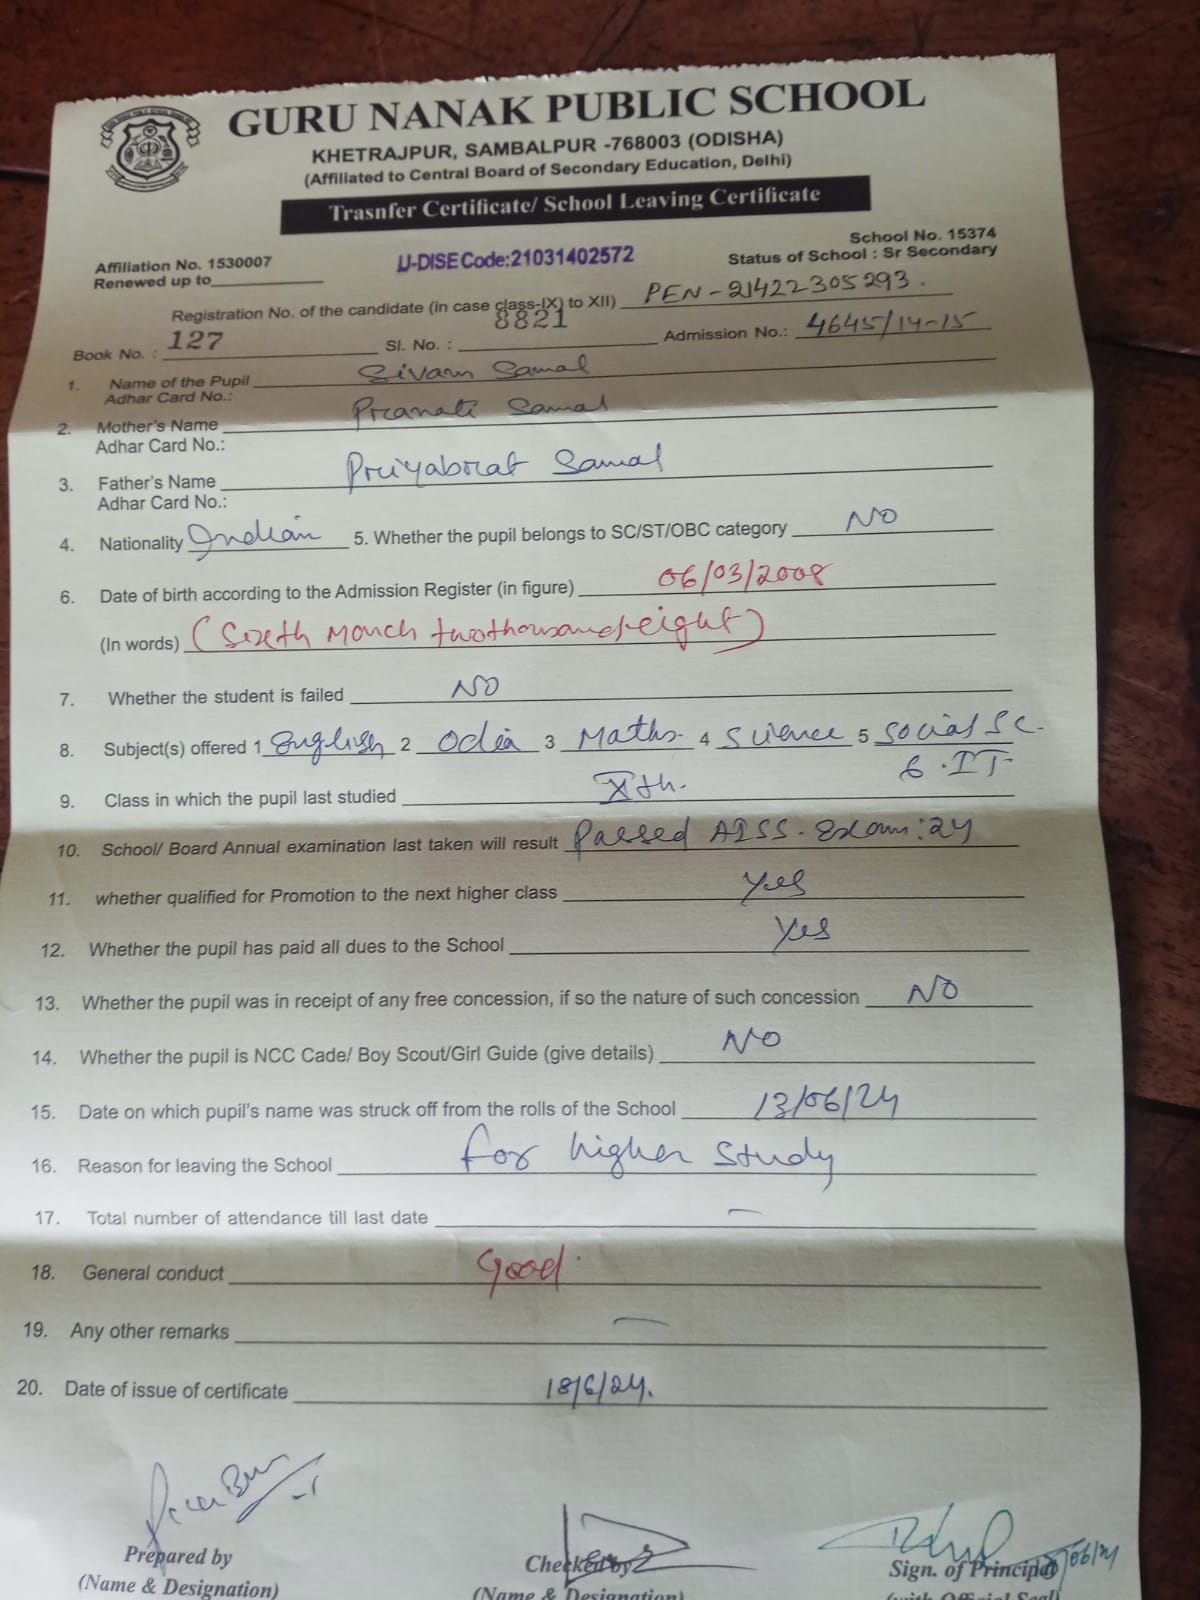 GURU NANAK PUBLIC SCHOOL
KHETRAJPUR, SAMBALPUR -768003 (ODISHA)
(Affiliated to Central Board of Secondary Education, Delhi)
Trasnfer Certificate/ School Leaving Certificate
School No. 15374
Affiliation No. 1530007 U-DISE Code:21031402572 Status of School : Sr Secondary
Renewed up to
Registration No. of the candidate (in case class-IX) to XII) PEN-21422305293.
Book No. : 127 Sl. No. : 8821 Admission No.: 4645/14-15
1. Name of the Pupil Sivam Samal
Adhar Card No.:
2. Mother's Name Pranati Samal
Adhar Card No.:
3. Father's Name Priyabrat Samal
Adhar Card No.:
4. Nationality Indian 5. Whether the pupil belongs to SC/ST/OBC category NO
6. Date of birth according to the Admission Register (in figure) 06/03/2008
(In words) (Sixth March twothousand eight)
7. Whether the student is failed NO
8. Subject(s) offered 1 English 2 Odia 3 Maths. 4 Science 5 Social Sc.
6. IT
9. Class in which the pupil last studied Xth.
10. School/ Board Annual examination last taken will result Passed AISS. Exam:24
11. whether qualified for Promotion to the next higher class Yes
12. Whether the pupil has paid all dues to the School Yes
13. Whether the pupil was in receipt of any free concession, if so the nature of such concession NO
14. Whether the pupil is NCC Cade/ Boy Scout/Girl Guide (give details) NO
15. Date on which pupil's name was struck off from the rolls of the School 13/06/24
16. Reason for leaving the School for higher study
17. Total number of attendance till last date –
18. General conduct Good.
19. Any other remarks –
20. Date of issue of certificate 18/6/24.
Prepared by Checked by Sign. of Principal
(Name & Designation) (Name & Designation) (with Official Seal)